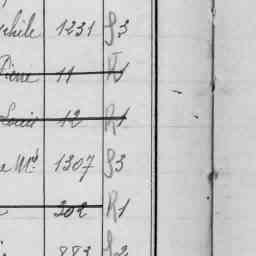 phile 1231 S3
Pierre 11 R1
Louis 12 R1
e Md 1307 S3
202 R1
883 S2